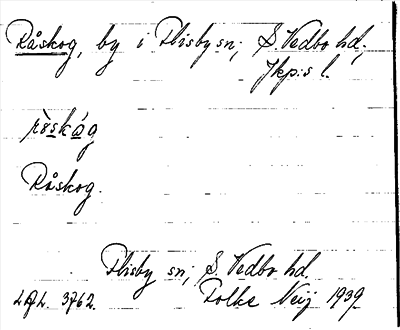 Råskog, by i Flisby sn; S. Vedbo hd;
Jkp:s l.
Råskog.
Flisby sn; S. Vedbo hd.
Folke Neij 1939.
3762.